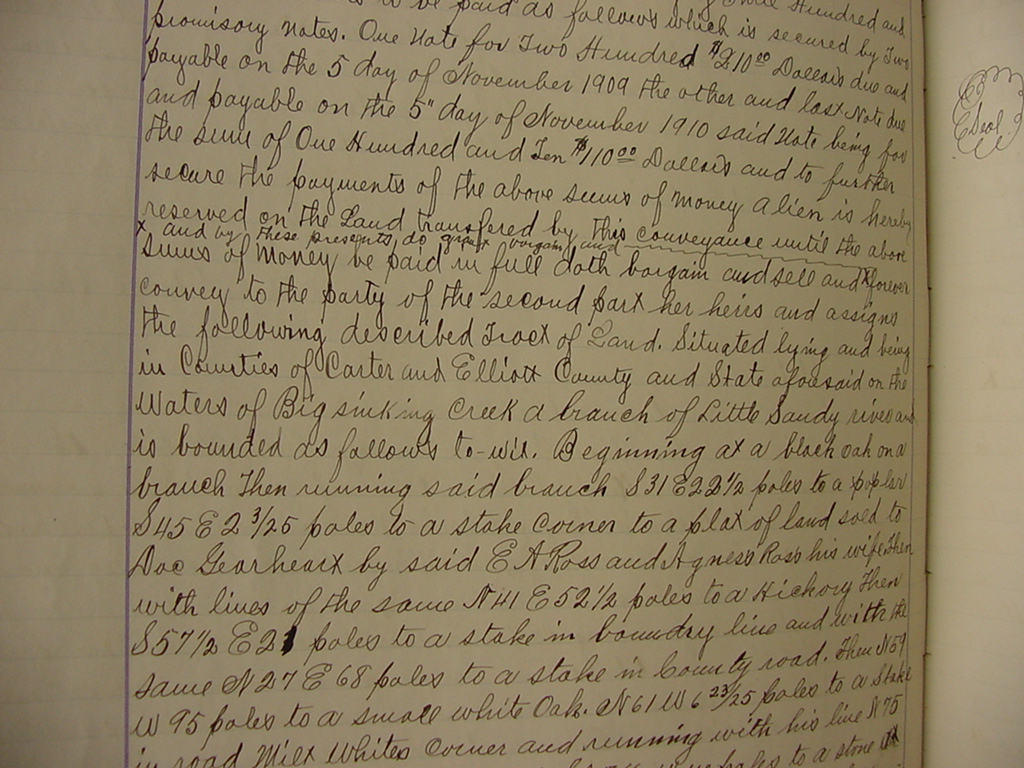 to be paid as follows which is secured by Two
promisory Notes. One Note for Two Hundred $210 00 Dollars due and
payable on the 5 day of November 1909 the other and last Note due
and payable on the 5" day of November 1910 said Note being for
the sum of One Hundred and Ten $110 00 Dollars and to further
secure the payments of the above sums of money a lien is hereby
reserved on the Land transfered by this conveyance until the above
x and by these presents do grant bargain and
sums of money be paid in full doth bargain and sell and x forever
convey to the party of the second part her heirs and assigns
the following described Tract of Land. Situated lying and being
in Counties of Carter and Elliott County and State aforesaid on the
Waters of Big sinking Creek a branch of Little Sandy river and
is bounded as follows to-wit. Beginning at a black oak on a
branch Then running said branch S 31 E 22 1/2 poles to a poplar
S 45 E 2 3/25 poles to a stake Corner to a plat of land sold to
Doc Gearheart by said E A Ross and Agness Ross his wife Then
with lines of the same N 41 E 52 1/2 poles to a Hickory Then
S 57 1/2 E 21 poles to a stake in boundry line and with the
same N 27 E 68 poles to a stake in County road. Then N 59
W 95 poles to a small white Oak. N 61 W 6 23/25 poles to a stake
in road Milt Whites Corner and running with his line N 75
poles to a stone
Seal